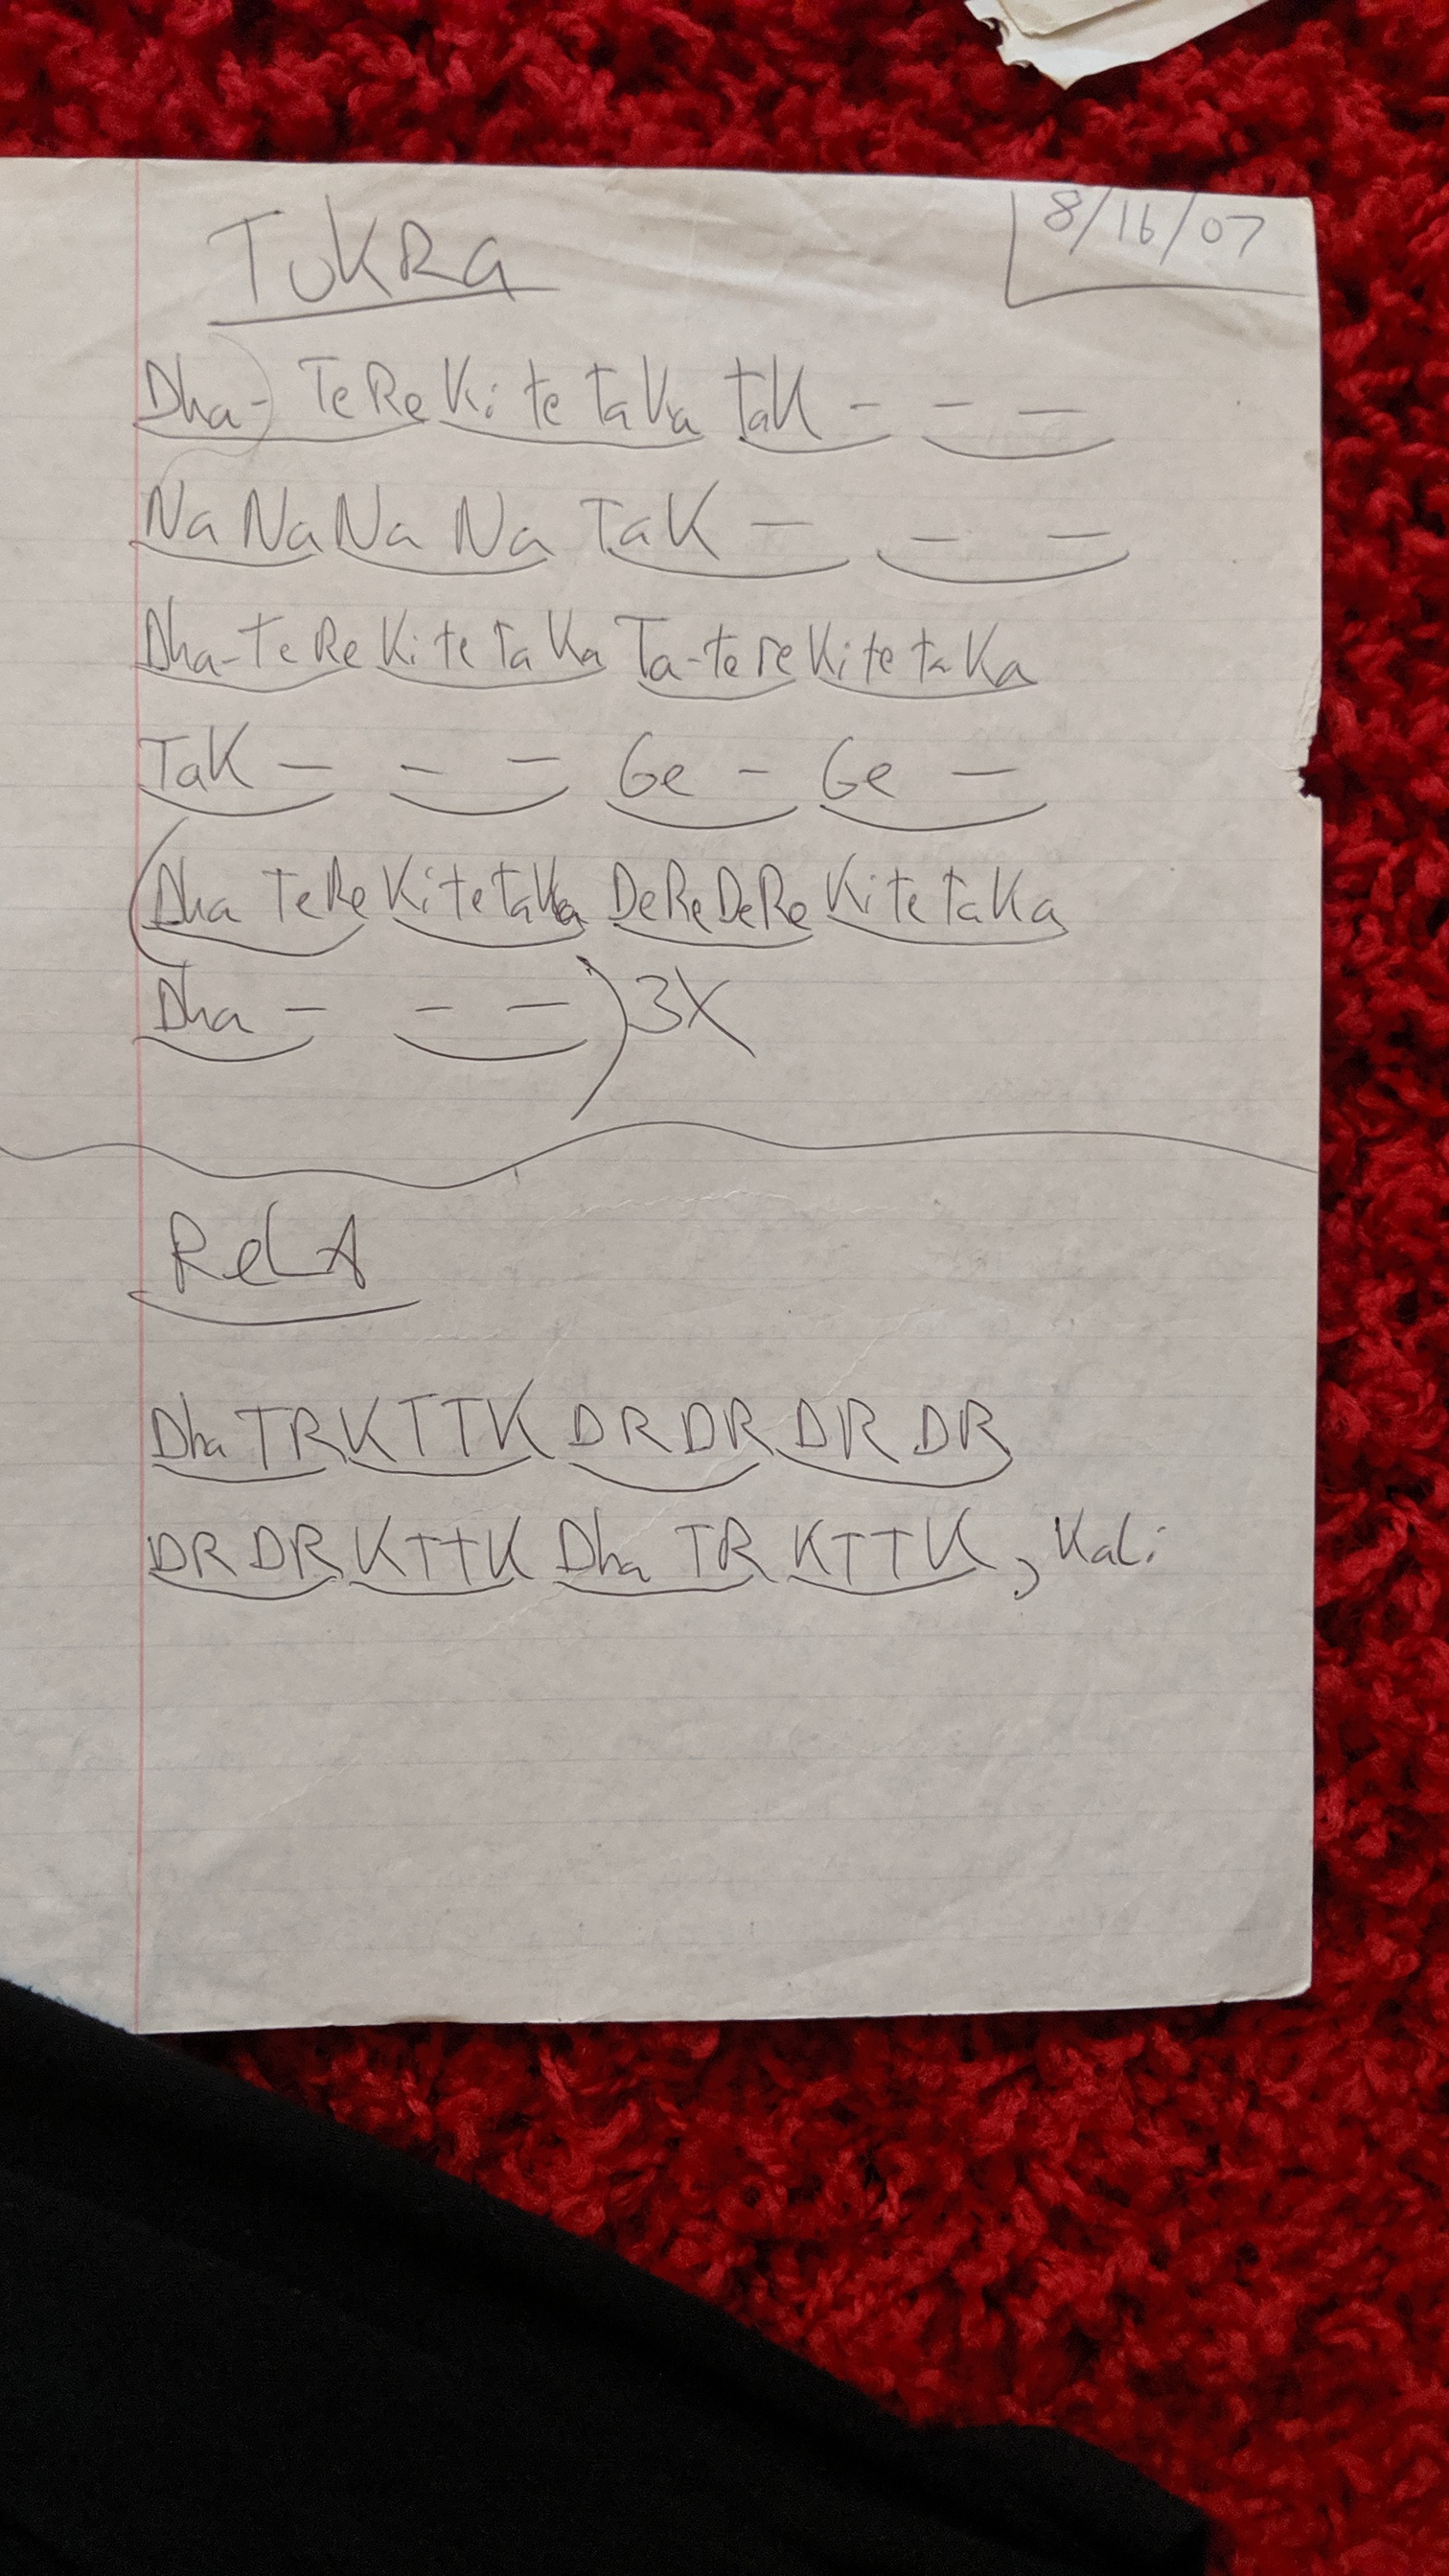 TUKRA 8/16/07
Dha-) TeRe Ki te taKa taK - - -
Na Na Na Na TaK - - -
Dha-TeRe Ki te TaKa Ta-tere Ki te taKa
TaK - - - Ge - Ge -
(Dha TeRe KitetaKa DeReDeRe KiteTaKa
Dha - - - ) 3X
ReLA
Dha TRKTTK DRDR DR DR
DR DR KTTK Dha TR KTTK, Kali